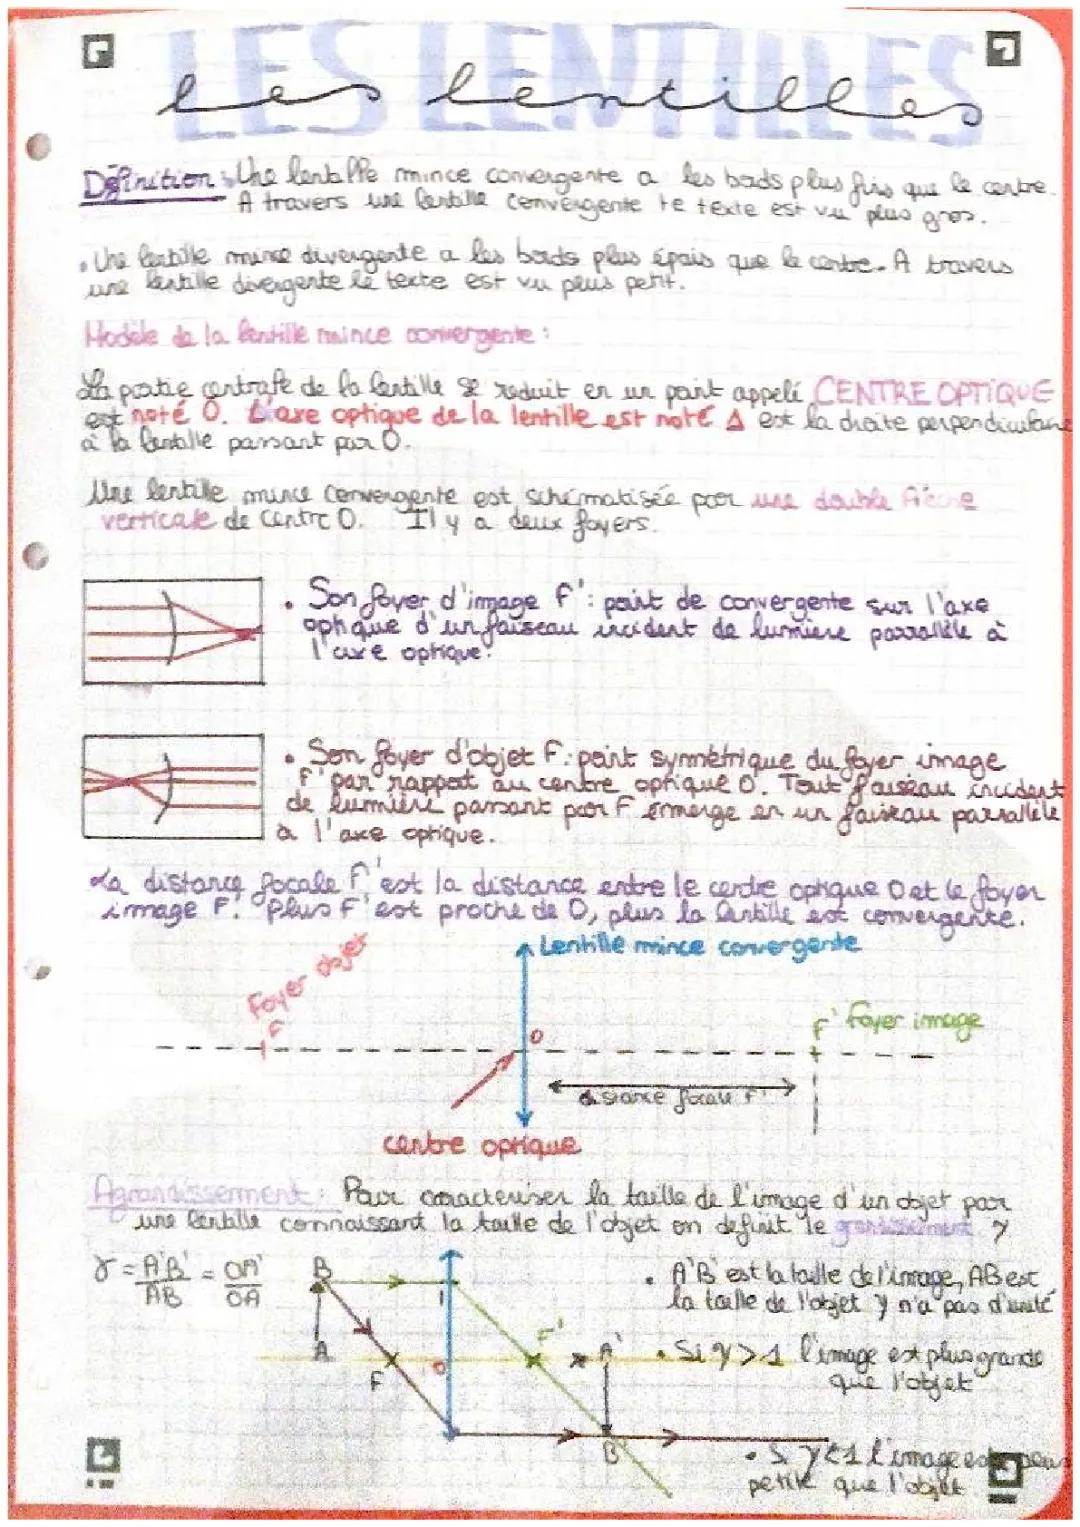 LES LENTILLES
les lentilles
Définition : Une lentille mince convergente a les bords plus fins que le centre.
A travers une lentille convergente le texte est vu plus gros.
• Une lentille mince divergente a les bords plus épais que le centre. A travers
une lentille divergente le texte est vu plus petit.
Modèle de la lentille mince convergente :
La partie centrale de la lentille se reduit en un point appelé CENTRE OPTIQUE
est noté O. L'axe optique de la lentille est noté Δ est la droite perpendiculaire
à la lentille passant par O.
Une lentille mince convergente est schématisée par une double flèche
verticale de centre O. Il y a deux foyers.
• Son foyer d'image F' : point de convergente sur l'axe
optique d'un faisceau incident de lumière parrallèle à
l'axe optique.
• Son foyer d'objet F : point symmétrique du foyer image
F' par rapport au centre optique O. Tout faisceau incident
de lumière passant par F émerge en un faisceau parrallèle
à l'axe optique.
La distance focale F' est la distance entre le centre optique O et le foyer
image F'. Plus F' est proche de O, plus la lentille est convergente.
Lentille mince convergente
Foyer objet
F
O
F' foyer image
distance focale F'
centre optique
Agrandissement : Pour caracteriser la taille de l'image d'un objet par
une lentille connaissant la taille de l'objet on définit le grandissement γ
γ = A'B' / AB = OA' / OA
B
I
A
F
O
F'
A'
B'
• A'B' est la taille de l'image, AB est
la taille de l'objet γ n'a pas d'unité
• Si γ > 1 l'image est plus grande
que l'objet
• Si γ < 1 l'image est plus
petite que l'objet